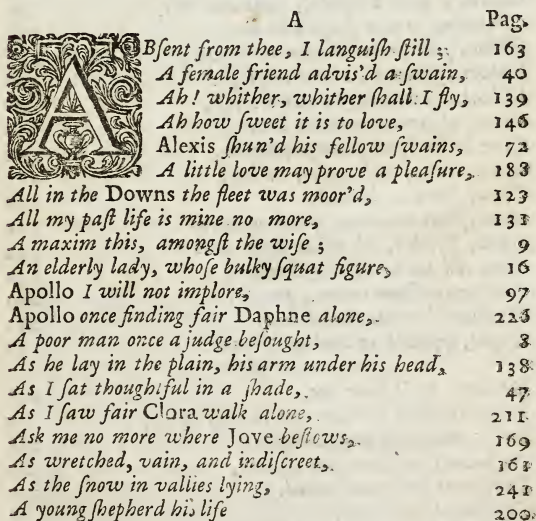 A Pag.
ABſent from thee, I languiſh ſtill ; 163
A female friend advis'd a ſwain, 40
Ah ! whither, whither ſhall I fly, 139
Ah how ſweet it is to love, 146
Alexis ſhun'd his fellow ſwains, 72
A little love may prove a pleaſure, 183
All in the Downs the fleet was moor'd, 123
All my paſt life is mine no more, 131
A maxim this, amongſt the wiſe ; 9
An elderly lady, whoſe bulky ſquat figure, 16
Apollo I will not implore, 97
Apollo once finding fair Daphne alone, 226
A poor man once a judge beſought, 8
As he lay in the plain, his arm under his head, 138
As I ſat thoughtful in a ſhade, 47
As I ſaw fair Clora walk alone, 211
Ask me no more where Jove beſtows, 169
As wretched, vain, and indiſcreet, 161
As the ſnow in vallies lying, 241
A young ſhepherd his life 200